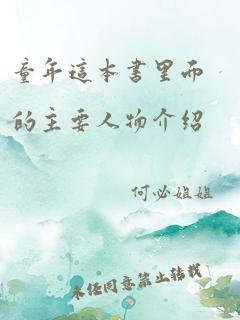 童年這本書里面
的主要人物介绍
何必姐姐
未经同意禁止转载